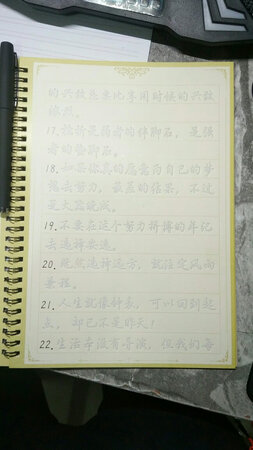 的兴致总要比享用时候的兴致
浓烈。
17.挫折是弱者的绊脚石，是强
者的垫脚石。
18.如果你真的愿意为自己的梦
想去努力，最差的结果，不过
是大器晚成。
19.不要在这个努力拼搏的年纪
去选择安逸。
20.既然选择远方，就注定风雨
兼程。
21.人生就像钟表，可以回到起
点，却已不是昨天！
22.生活本没有导演，但我们每